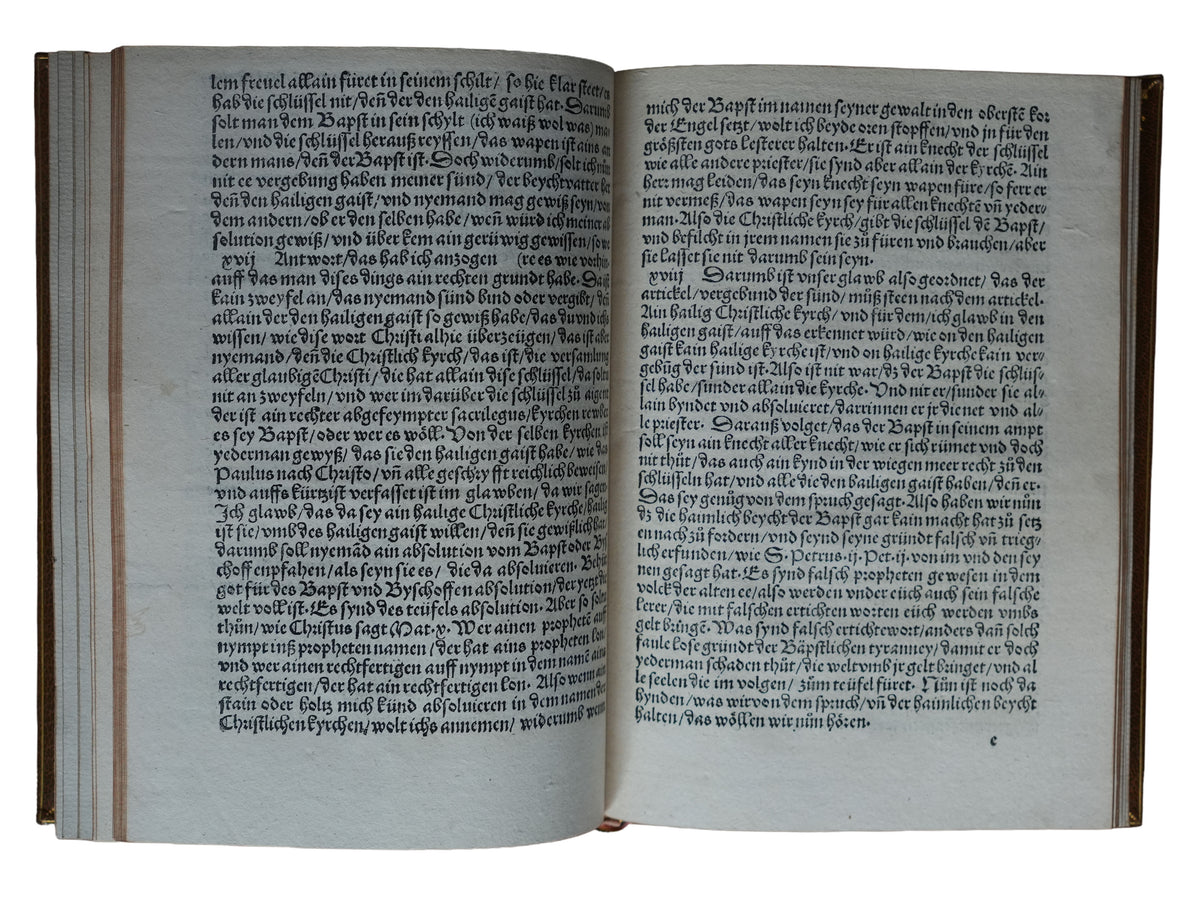 lem freuel allain füret in seinem schilt/ so hie klar steet/
hab die schlüssel nit/ deñ der den hailigẽ gaist hat. Darumb
solt man dem Bapst in sein schylt (ich waiß wol was) ma
len/ vnd die schlüssel herauß reyssen/ das wapen ist ains an
dern mans/ deñ der Bapst ist. Doch widerumb/ solt ich nũn
nit ee vergebung haben meiner sünd/ der beychtvatter het
deñ den hailigen gaist/ vnd nyemand mag gewiß seyn/ von
dem andern/ ob er den selben habe/ weñ würd ich meiner ab
solution gewiß/ vnd über kem ain gerüwig gewissen/ so we
xvij Antwort/ das hab ich anzogen (re es wie vorhin.
auff das man dises dings ain rechten grundt habe. Da ist
kain zweyfel an/ das nyemand sünd bind oder vergibt/ deñ
allain der den hailigen gaist so gewiß habe/ das du vnd ichs
wissen/ wie dise wort Christi alhie überzeügen/ das ist aber
nyemand/ deñ die Christlich kyrch/ das ist/ die versamlung
aller glaubigẽ Christi/ die hat allain dise schlüssel/ da soltu
nit an zweyfeln/ vnd wer im darüber die schlüssel zů aigent
der ist ain rechter abgefeympter sacrilegus/ kyrchen rewber
es sey Bapst/ oder wer es wöll. Von der selben kyrchen ist
yederman gewyß/ das sie den hailigen gaist habe/ wie das
Paulus nach Christo/ vñ alle geschryfft reichlich beweisen
vnd auffs kürtzist verfasset ist im glawben/ da wir sagen
Ich glawb/ das da sey ain hailige Christliche kyrche/ hailig
ist sie/ vmb des hailigen gaist willen/ deñ sie gewißlich hat
darumb soll nyemãd ain absolution vom Bapst oder By
schoff enpfahen/ als seyn sie es/ die da absoluieren. Behüt
got für des Bapst vnd Byschoffen absolution/ der yetzt die
welt voll ist. Es synd des teüfels absolution. Aber so soltu
thůn/ wie Christus sagt Mat. x. Wer ainen prophetẽ auff
nympt inß propheten namen/ der hat ains propheten lon/
vnd wer ainen rechtfertigen auff nympt in dem namẽ ains
rechtfertigen/ der hat ain rechtfertigen lon. Also wenn ain
stain oder holtz mich künd absoluieren in dem namen der
Christlichen kyrchen/ wolt ichs annemen/ widerumb wenn
mich der Bapst im namen seyner gewalt in den oberstẽ kor
der Engel setzt/ wolt ich beyde oren stopffen/ vnd jn für den
größsten gots lesterer halten. Er ist ain knecht der schlüssel
wie alle andere priester/ sie synd aber allain der kyrchẽ. Ain
herr mag leiden/ das seyn knecht seyn wapen füre/ so ferr er
nit vermeß/ das wapen seyn sey für allen knechtẽ vñ yeder⸗
man. Also die Christliche kyrch/ gibt die schlüssel dẽ Bapst/
vnd befilcht in jrem namen sie zů füren vnd brauchen/ aber
sie lasset sie nit darumb sein seyn.
xviij Darumb ist vnser glawb also geordnet/ das der
artickel/ vergebund der sünd/ můß steen nach dem artickel.
Ain hailig Christliche kyrch/ vnd für dem/ ich glawb in den
hailigen gaist/ auff das erkennet würd/ wie on den hailigen
gaist kain hailige kyrche ist/ vnd on hailige kyrche kain ver⸗
gebũg der sünd ist. Also ist nit war/ dz der Bapst die schlüs⸗
sel habe/ sunder allain die kyrche. Vnd nit er/ sunder sie al⸗
lain byndet vnd absoluieret/ darrinnen er jr dienet vnd al⸗
le priester. Darauß volget/ das der Bapst in seinem ampt
soll seyn ain knecht aller knecht/ wie er sich rümet vnd doch
nit thůt/ das auch ain kynd in der wiegen meer recht zů den
schlüsseln hat/ vnd alle die den hailigen gaist haben/ deñ er.
Das sey genůg von dem spruch gesagt. Also haben wir nũn
dz die haimlich beycht der Bapst gar kain macht hat zů setz
en nach zů fordern/ vnd seynd seyne gründt falsch vñ trieg⸗
lich erfunden/ wie S. Petrus. ij. Pet. ij. von im vnd den sey
nen gesagt hat. Es synd falsch propheten gewesen in dem
volck der alten ee/ also werden vnder eüch auch sein falsche
lerer/ die mit falschen ertichten worten eüch werden vmbs
gelt bringẽ. Was synd falsch ertichte wort/ anders dañ solch
faule lose gründt der Bäpstlichen tyranney/ damit er doch
yederman schaden thůt/ die welt vmb jr gelt bringet/ vnd al
le seelen die im volgen/ zům teüfel füret. Nũn ist noch da
hynden/ was wir von dem spruch/ vñ der haimlichen beycht
halten/ das wöllen wir nũn hören.
e